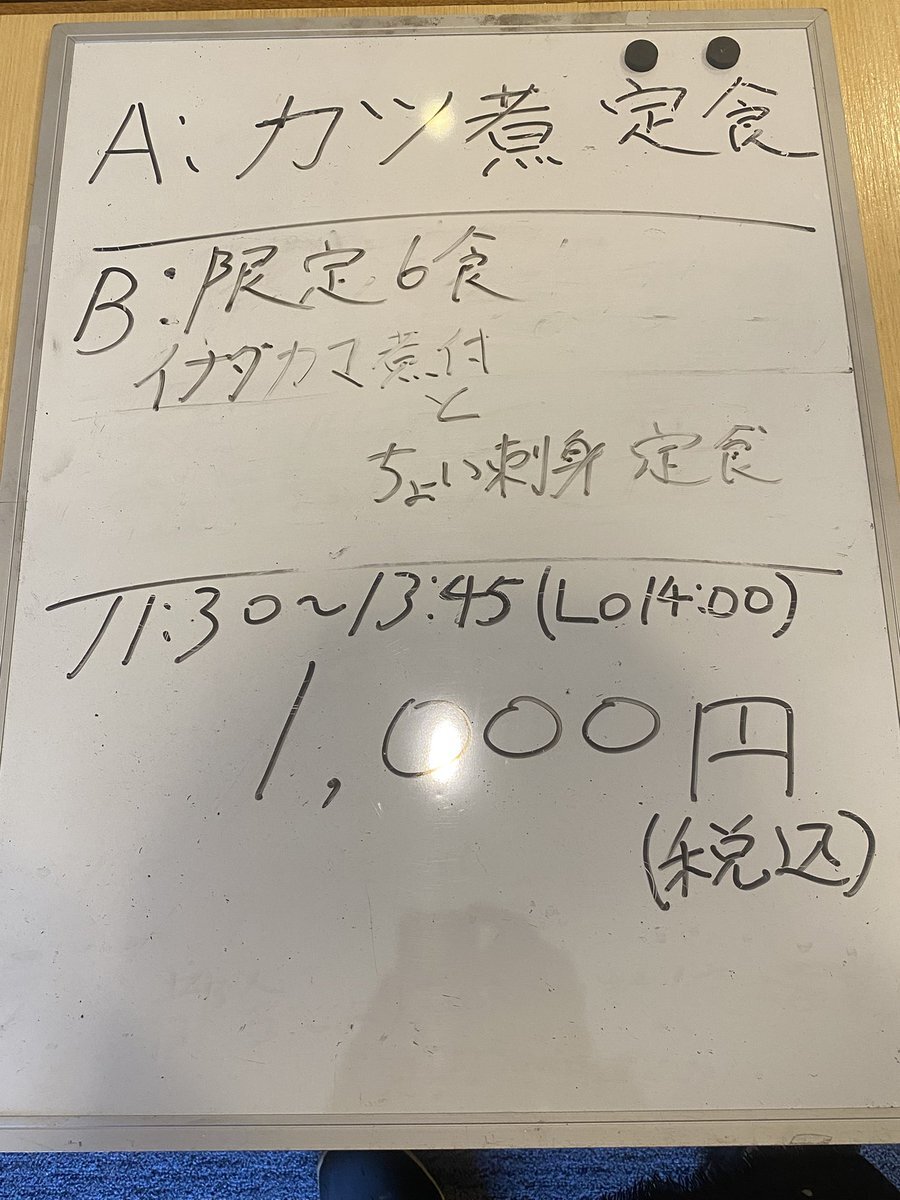 A: カツ煮 定食
B: 限定6食
イナダカマ煮付
と
ちょい刺身 定食
11:30~13:45(Lo14:00)
1,000円
(税込)